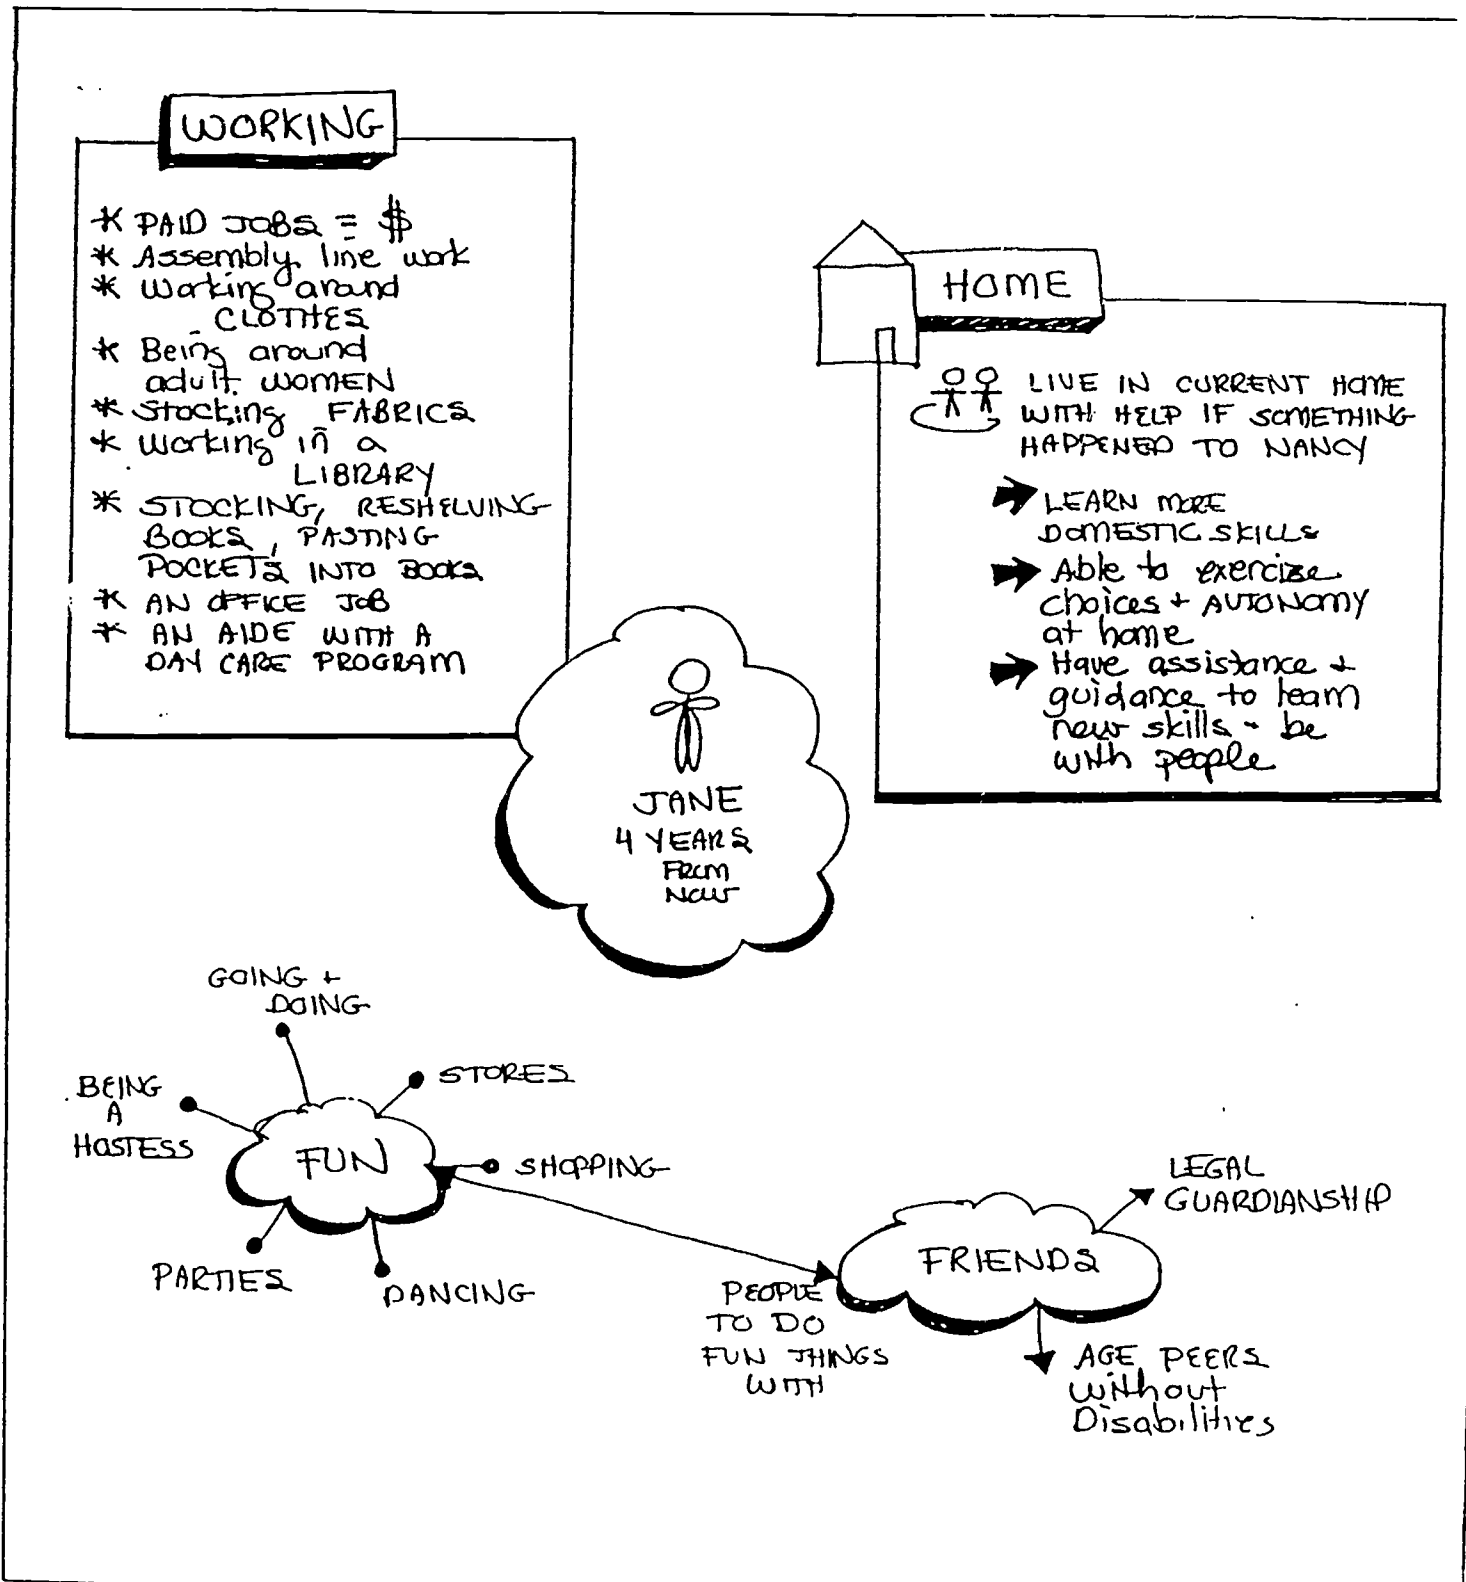 WORKING
* PAID JOBS = $
* Assembly line work
* Working around
CLOTHES
* Being around
adult WOMEN
* Stocking FABRICS
* Working in a
LIBRARY
* STOCKING, RESHELVING
BOOKS, PASTING
POCKETS INTO BOOKS
* AN OFFICE JOB
* AN AIDE WITH A
DAY CARE PROGRAM
HOME
LIVE IN CURRENT HOME
WITH HELP IF SOMETHING
HAPPENED TO NANCY
LEARN MORE
DOMESTIC SKILLS
Able to exercize
choices + AUTONOMY
at home
Have assistance +
guidance to learn
new skills + be
with people
JANE
4 YEARS
FROM
NOW
GOING +
DOING
STORES
BEING
A
HOSTESS
FUN
SHOPPING
PARTIES
DANCING
LEGAL
GUARDIANSHIP
FRIENDS
PEOPLE
TO DO
FUN THINGS
WITH
AGE PEERS
without
Disabilities